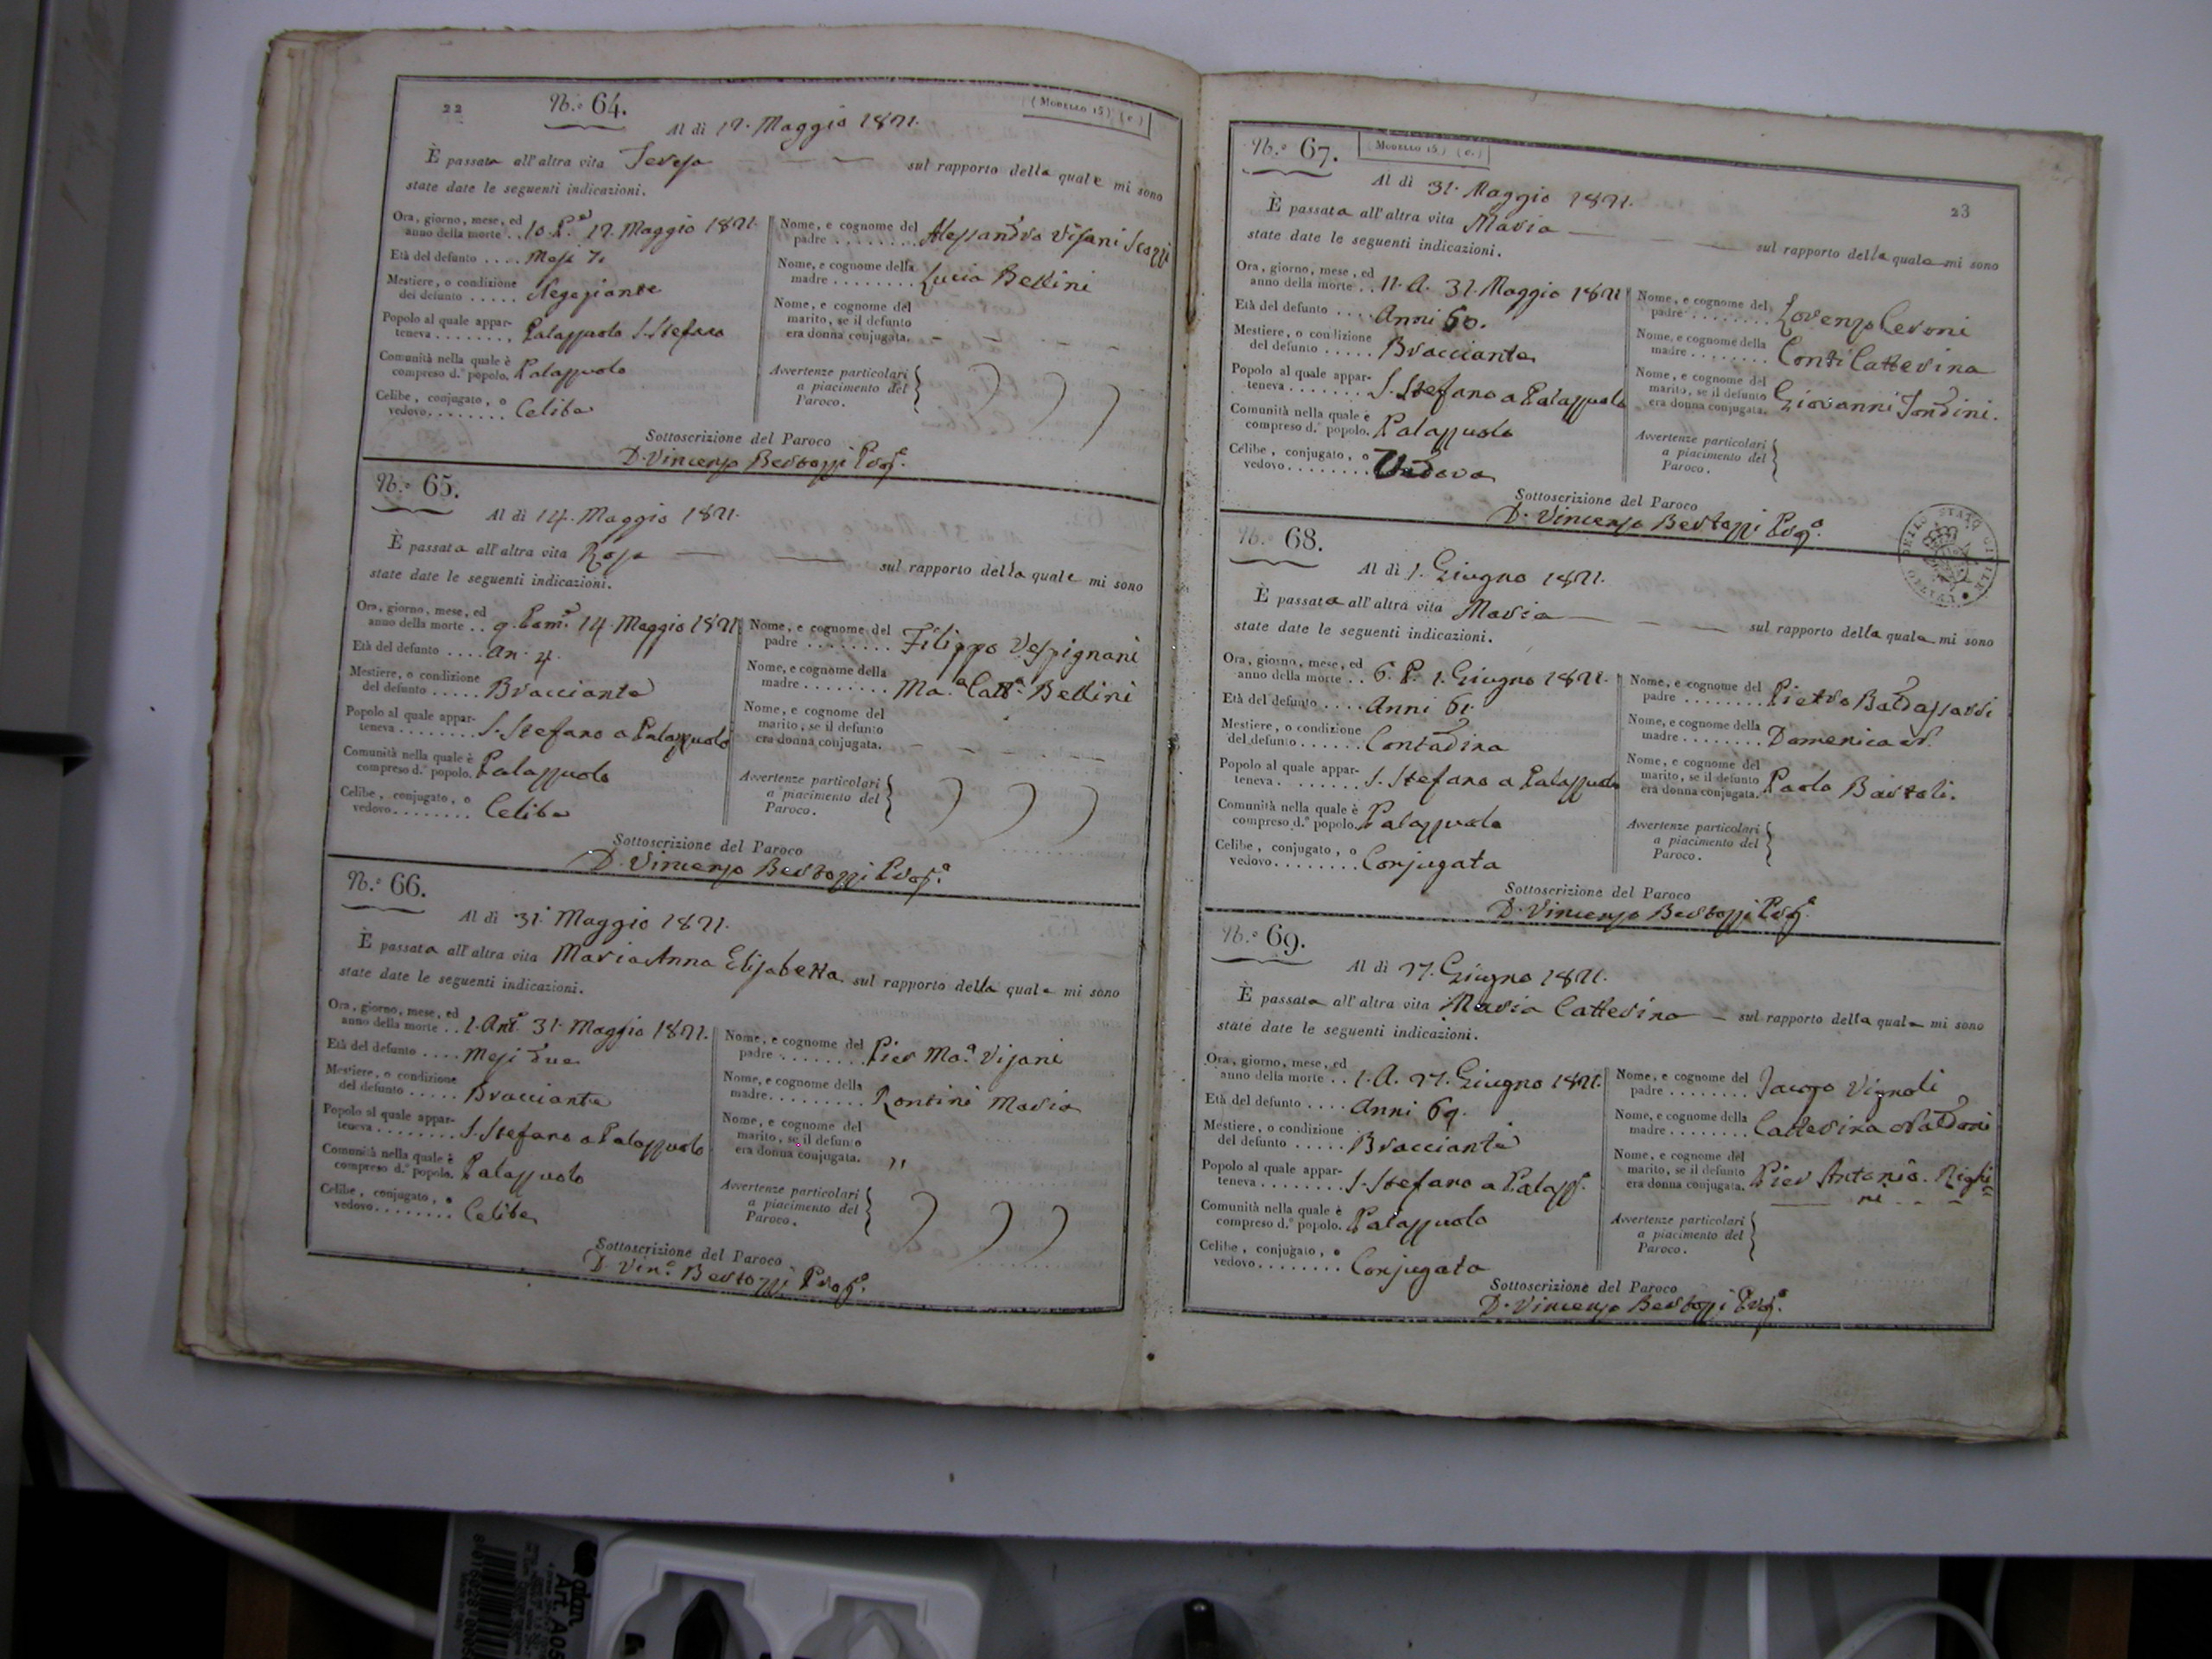 22
N.° 64.
(Modello 15) (c)
Al dì 12. Maggio 1821.
È passata all'altra vita Teresa — — — sul rapporto della quale mi sono
state date le seguenti indicazioni.
Ora, giorno, mese, ed
anno della morte .. 10. P. 12. Maggio 1821.
Età del defunto .... Mesi 7.
Mestiere, o condizione
del defunto ..... Negoziante
Popolo al quale appar-
teneva ........ Palazzuolo S. Stefano
Comunità nella quale è
compreso d.° popolo. Palazzuolo
Celibe, conjugato, o
vedovo........ Celibe
Nome, e cognome del
padre ........ Alessandro Visani Scozzi
Nome, e cognome della
madre ........ Lucia Bellini
Nome, e cognome del
marito, se il defunto
era donna conjugata. — — — —
Avvertenze particolari
a piacimento del
Paroco.
Sottoscrizione del Paroco
D. Vincenzo Bertozzi
N.° 65.
Al dì 14. Maggio 1821.
È passata all'altra vita Rosa — — sul rapporto della quale mi sono
state date le seguenti indicazioni.
Ora, giorno, mese, ed
anno della morte .. 9. 14. Maggio 1821
Età del defunto .... an. 4.
Mestiere, o condizione
del defunto ..... Bracciante
Popolo al quale appar-
teneva ........ S. Stefano a Palazzuolo
Comunità nella quale è
compreso d.° popolo. Palazzuolo
Celibe, conjugato, o
vedovo........ Celibe
Nome, e cognome del
padre ........ Filippo Vespignani
Nome, e cognome della
madre ........ Ma.ª Catt.ª Bellini
Nome, e cognome del
marito, se il defunto
era donna conjugata. — — — —
Avvertenze particolari
a piacimento del
Paroco.
Sottoscrizione del Paroco
D. Vincenzo Bertozzi
N.° 66.
Al dì 31. Maggio 1821.
È passata all'altra vita Maria Anna Elisabetta sul rapporto della quale mi sono
state date le seguenti indicazioni.
Ora, giorno, mese, ed
anno della morte .. 1. Ant. 31. Maggio 1821.
Età del defunto .... Mesi due
Mestiere, o condizione
del defunto ..... Bracciante
Popolo al quale appar-
teneva ........ S. Stefano a Palazzuolo
Comunità nella quale è
compreso d.° popolo. Palazzuolo
Celibe, conjugato, o
vedovo........ Celibe
Nome, e cognome del
padre ........ Pier Ma.ª Visani
Nome, e cognome della
madre......... Rontini Maria
Nome, e cognome del
marito, se il defunto
era donna conjugata. ,,
Avvertenze particolari
a piacimento del
Paroco.
Sottoscrizione del Paroco
D. Vin.° Bertozzi
N.° 67.
Modello 15.) (c.)
23
Al dì 31. Maggio 1821.
È passata all'altra vita Maria — — — sul rapporto della quale mi sono
state date le seguenti indicazioni.
Ora, giorno, mese, ed
anno della morte .. 11. A. 31. Maggio 1821
Età del defunto .... Anni 60.
Mestiere, o condizione
del defunto ..... Bracciante
Popolo al quale appar-
teneva ........ S. Stefano a Palazzuolo
Comunità nella quale è
compreso d.° popolo. Palazzuolo
Celibe, conjugato, o
vedovo........ Vedova
Nome, e cognome del
padre ........ Lorenzo Ceroni
Nome, e cognome della
madre ........ Conti Catterina
Nome, e cognome del
marito, se il defunto
era donna conjugata. Giovanni Tondini.
Avvertenze particolari
a piacimento del
Paroco.
Sottoscrizione del Paroco
D. Vincenzo Bertozzi
N.° 68.
Al dì 1. Giugno 1821.
È passata all'altra vita Maria — — — sul rapporto della quale mi sono
state date le seguenti indicazioni.
Ora, giorno, mese, ed
anno della morte .. 6. P. 1. Giugno 1821.
Età del defunto .... Anni 61.
Mestiere, o condizione
del defunto ...... Contadina
Popolo al quale appar-
teneva. ....... S. Stefano a Palazzuolo
Comunità nella quale è
compreso d.° popolo. Palazzuolo
Celibe, conjugato, o
vedovo........ Conjugata
Nome, e cognome del
padre ........ Pietro Baldassarri
Nome, e cognome della
madre ........ Domenica N.
Nome, e cognome del
marito, se il defunto
era donna conjugata. Paolo Bartoli.
Avvertenze particolari
a piacimento del
Paroco.
Sottoscrizione del Paroco
D. Vincenzo Bertozzi
N.° 69.
Al dì 27. Giugno 1821.
È passata all'altra vita Maria Catterina — sul rapporto della quale mi sono
state date le seguenti indicazioni.
Ora, giorno, mese, ed
anno della morte .. 1. A. 27. Giugno 1821.
Età del defunto .... Anni 69.
Mestiere, o condizione
del defunto ..... Bracciante
Popolo al quale appar-
teneva ........ S. Stefano a Palazz.
Comunità nella quale è
compreso d.° popolo. Palazzuolo
Celibe, conjugato, o
vedovo........ Conjugata
Nome, e cognome del
padre ........ Jacopo Vignoli
Nome, e cognome della
madre ........ Catterina Naldoni
Nome, e cognome del
marito, se il defunto
era donna conjugata. Pier Antonio. Righi=
ni
Avvertenze particolari
a piacimento del
Paroco.
Sottoscrizione del Paroco
D. Vincenzo Bertozzi